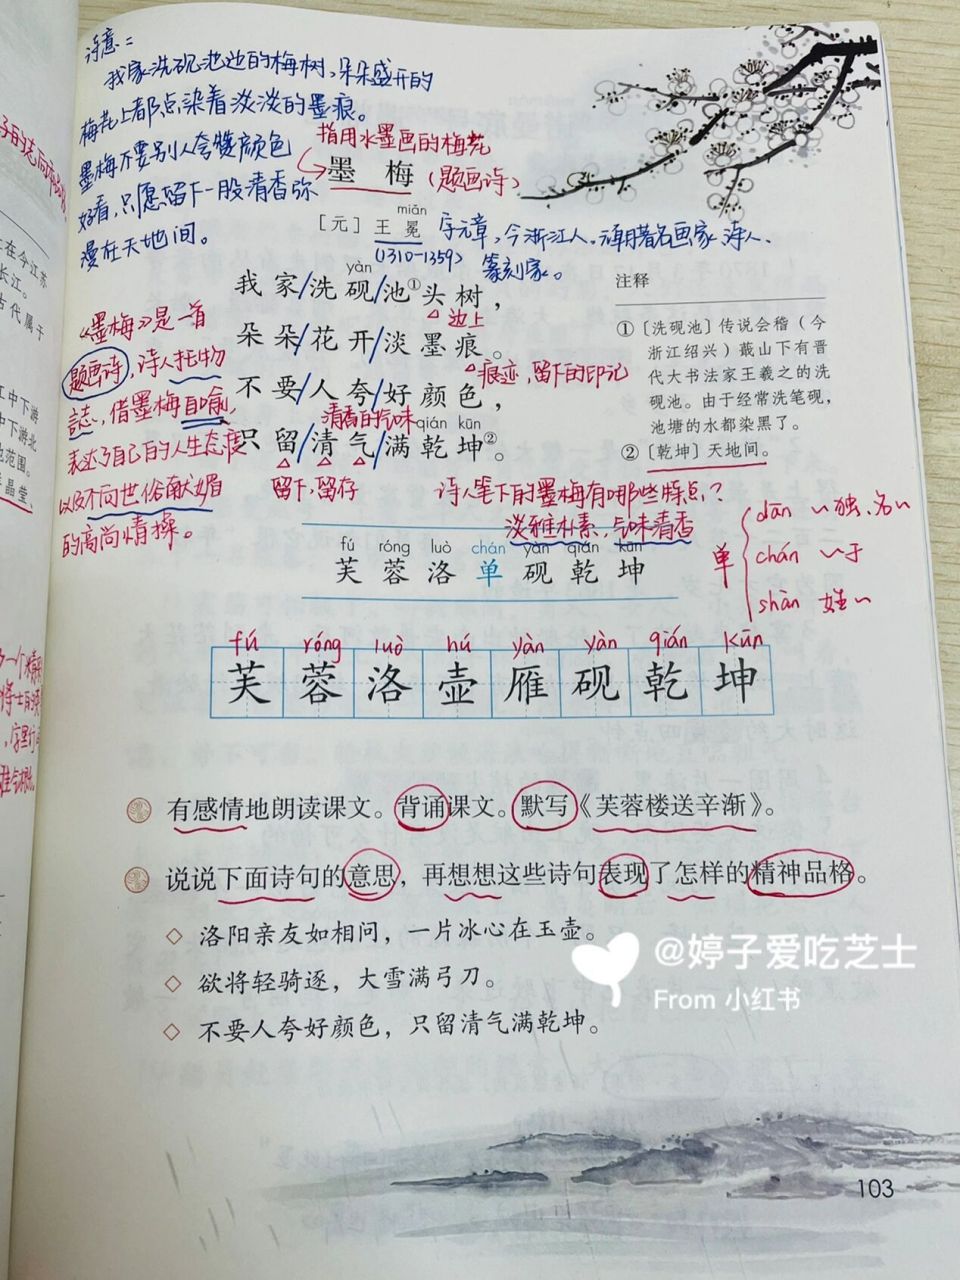 诗意：
我家洗砚池边的梅树，朵朵盛开的
梅花上都点染着淡淡的墨痕。
墨梅不要别人夸赞颜色
好看，只愿留下一股清香弥
漫在天地间。
指用水墨画的梅花
墨 梅（题画诗）
miǎn
［元］王冕 字元章，今浙江人，元朝著名画家、诗人、
(1310-1359) 篆刻家。
yàn
我家/洗砚/池①头树，
边上
朵朵/花开/淡墨痕。
痕迹，留下的印记
不要/人夸/好颜色，
清香的气味
qián kūn
只留/清气/满乾坤②。
留下，留存
《墨梅》是一首
题画诗，诗人托物
言志，借墨梅自喻，
表达了自己的人生态度
以及不向世俗献媚
的高尚情操。
注释
①［洗砚池］传说会稽（今
浙江绍兴）蕺山下有晋
代大书法家王羲之的洗
砚池。由于经常洗笔砚，
池塘的水都染黑了。
②［乾坤］天地间。
诗人笔下的墨梅有哪些特点？
淡雅朴素，气味清香
fú róng luò chán yàn qián kūn
芙 蓉 洛 单 砚 乾 坤
单
dān ~独、名~
chán ~于
shàn 姓~
fú róng luò hú yàn yàn qián kūn
芙 蓉 洛 壶 雁 砚 乾 坤
有感情地朗读课文。背诵课文。默写《芙蓉楼送辛渐》。
说说下面诗句的意思，再想想这些诗句表现了怎样的精神品格。
◇ 洛阳亲友如相问，一片冰心在玉壶。
◇ 欲将轻骑逐，大雪满弓刀。
◇ 不要人夸好颜色，只留清气满乾坤。
@婷子爱吃芝士
From 小红书
103
在今江苏
长江。
古代属于
江中下游
中下游北
范围。
晶莹、